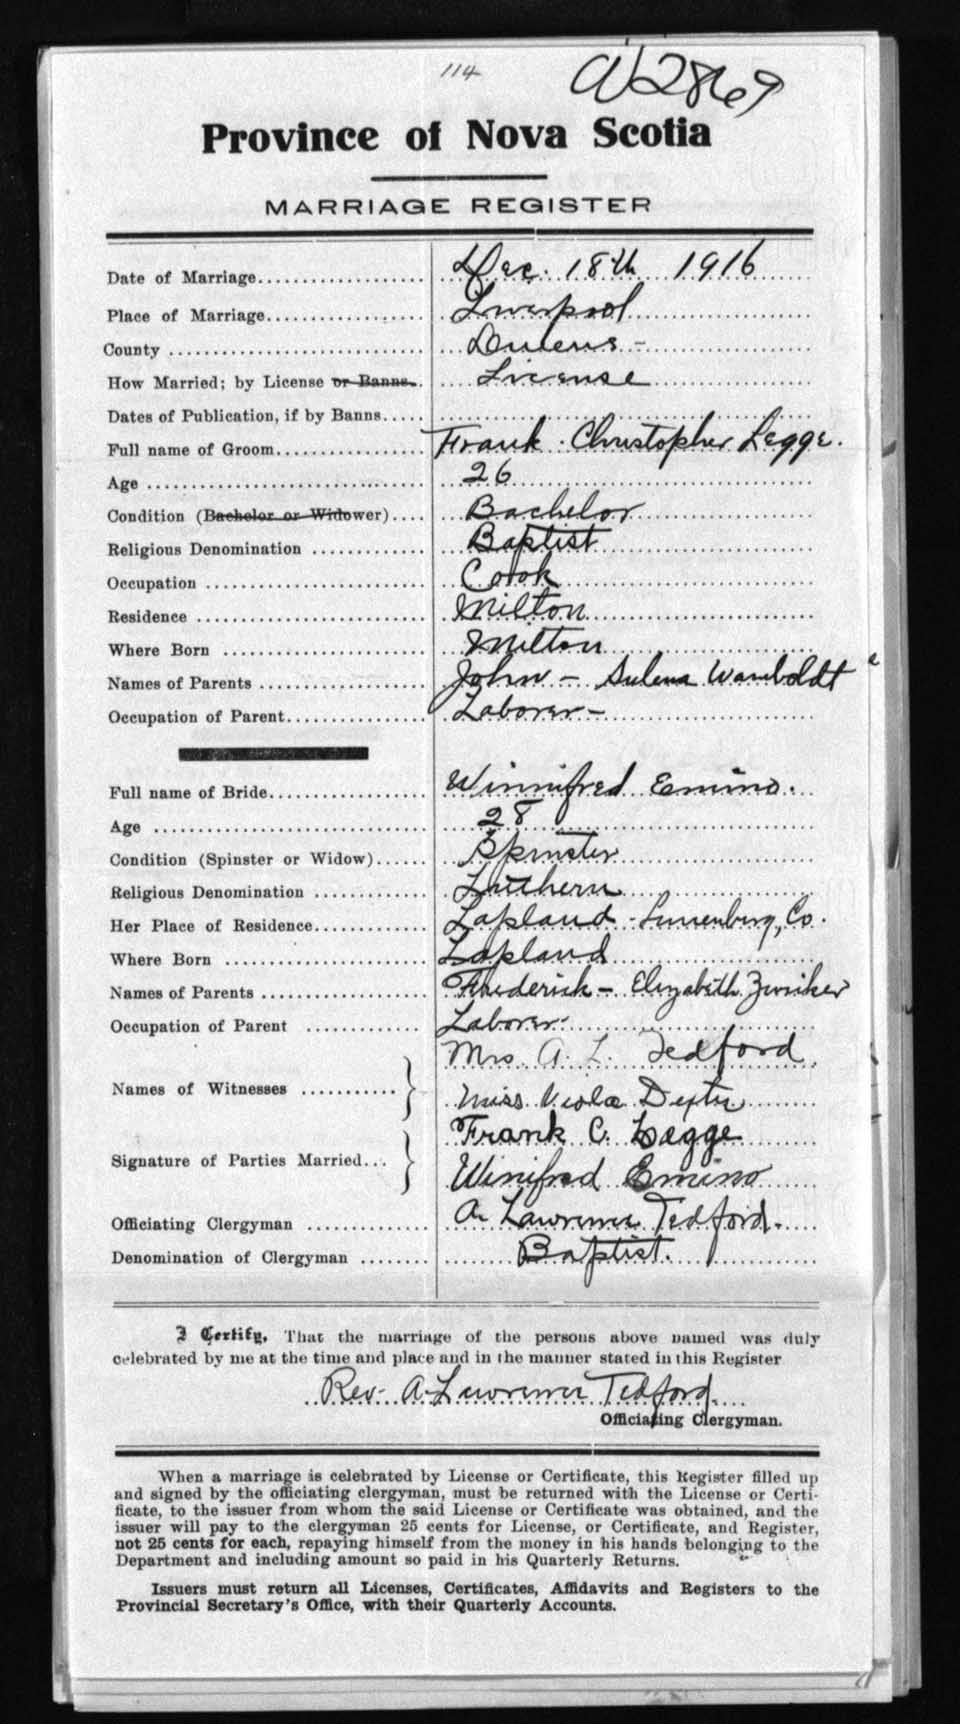 114
A62869
Province of Nova Scotia
MARRIAGE REGISTER
Date of Marriage.................... Dec. 18th 1916
Place of Marriage.................. Liverpool
County ............................. Queens -
How Married; by License or Banns.. License
Dates of Publication, if by Banns.....
Full name of Groom................. Frank Christopher Legge.
Age ................................ 26
Condition (Bachelor or Widower).... Bachelor
Religious Denomination ............. Baptist
Occupation ......................... Cook
Residence .......................... Milton
Where Born ........................ Milton
Names of Parents .................. John - Sulena Wamboldt
Occupation of Parent................ Laborer -
Full name of Bride.................. Winnifred Emino.
Age ................................ 28
Condition (Spinster or Widow)...... Spinster
Religious Denomination ............. Luthern
Her Place of Residence............. Lapland - Lunenburg, Co.
Where Born ........................ Lapland
Names of Parents .................. Frederick - Elizabeth Zwicker
Occupation of Parent ............. Laborer
Mrs A. L. Tedford
Names of Witnesses ...........
Miss Viola Dexter
Frank C. Legge
Signature of Parties Married...
Winifred Emino
Officiating Clergyman ............. A. Lawrence Tedford.
Denomination of Clergyman ........ Baptist.
I Certify, That the marriage of the persons above named was duly
celebrated by me at the time and place and in the manner stated in this Register
Rev. A. Lawrence Tedford.
Officiating Clergyman.
When a marriage is celebrated by License or Certificate, this Register filled up
and signed by the officiating clergyman, must be returned with the License or Certi-
ficate, to the issuer from whom the said License or Certificate was obtained, and the
issuer will pay to the clergyman 25 cents for License, or Certificate, and Register,
not 25 cents for each, repaying himself from the money in his hands belonging to the
Department and including amount so paid in his Quarterly Returns.
Issuers must return all Licenses, Certificates, Affidavits and Registers to the
Provincial Secretary's Office, with their Quarterly Accounts.